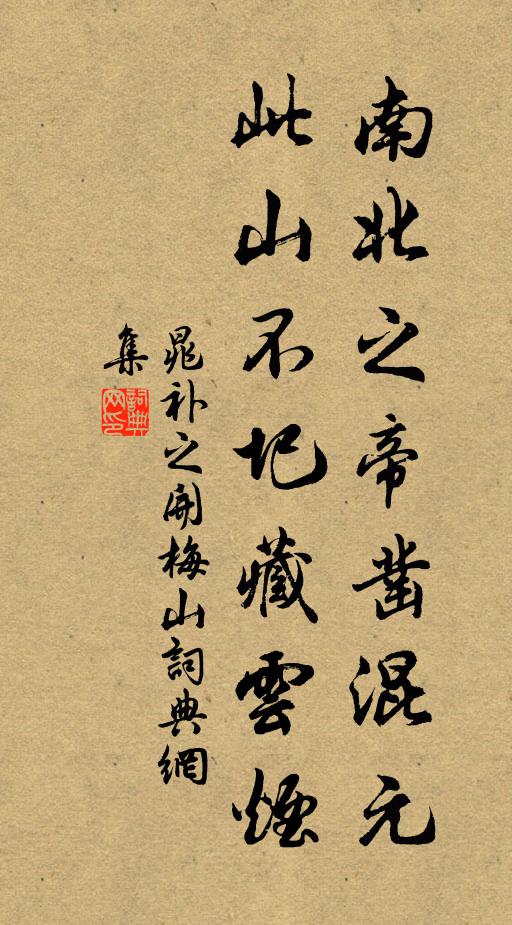 南北之帝凿混元
此山不圮藏雲煙
晁补之開梅山詞典網
集
詞典
网印